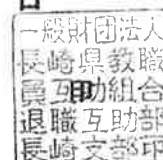 一般財団法人
長崎県教職
員互助組合
退職互助部
長崎支部印
印